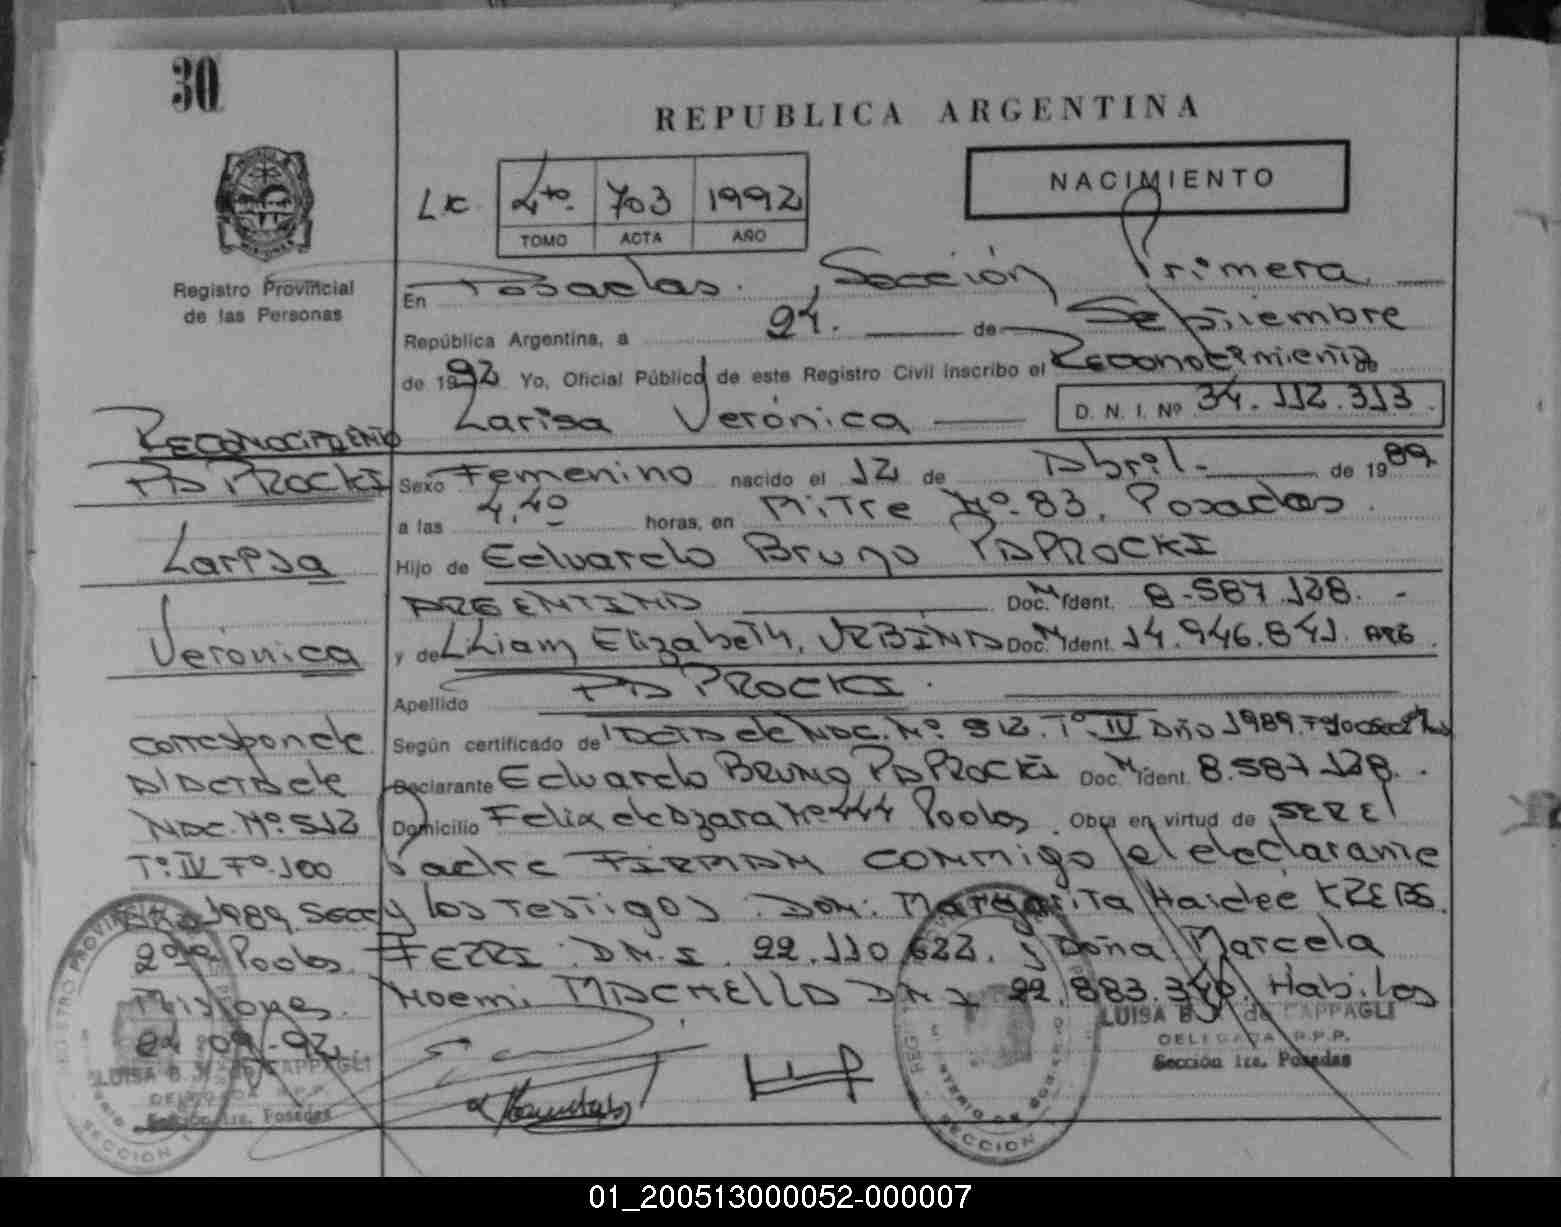 30
REPUBLICA ARGENTINA
NACIMIENTO
4to. 703 1992
TOMO ACTA AÑO
Registro Provincial
de las Personas
En Posadas. Sección Primera
República Argentina, a 24. de Septiembre
de 1992 Yo, Oficial Público de este Registro Civil inscribo el Reconocimiento de
Larisa Verónica D. N. I. Nº 34.112.313.
Sexo Femenino nacido el 12 de Abril de 1989
a las 4,40 horas, en Mitre Nº 83. Posadas.
Hijo de Eduardo Bruno PAPROCKI
ARGENTINA Doc. Ident. 8.587.128.
y de Liliam Elizabeth, URBINA Doc. Ident. 14.946.841. ARG.
Apellido PAPROCKI.
Según certificado de Acta de Nac. Nº 512. Tº IV Año 1989. Fº 100
Declarante Eduardo BRUNO PAPROCKI Doc. Ident. 8.587.128.
Domicilio Felix de Azara Nº 444 Pdas. Obra en virtud de SER El
Padre FIRMAN conmigo el declarante
y los testigos: Margarita Haideé KREBS
FERRI: D.N.I. 22.110.622. y Doña Marcela
Noemi D.N.I. 22.883.340. Habilos
LUISA B. J. de CAPPAGLI
DELEGADA R.P.P.
Sección 1ra. Posadas
RECONOCIMIENTO
PAPROCKI
Larisa
Verónica
corresponde
A/ Acta de
NAC. Nº 512
Tº IV Fº 100
1989. Secc
2da Pdas.
Misiones.
24-09-92.
LUISA B. J. de CAPPAGLI
Sección 1ra. Posadas
SECCION
SECCION
01_200513000052-000007